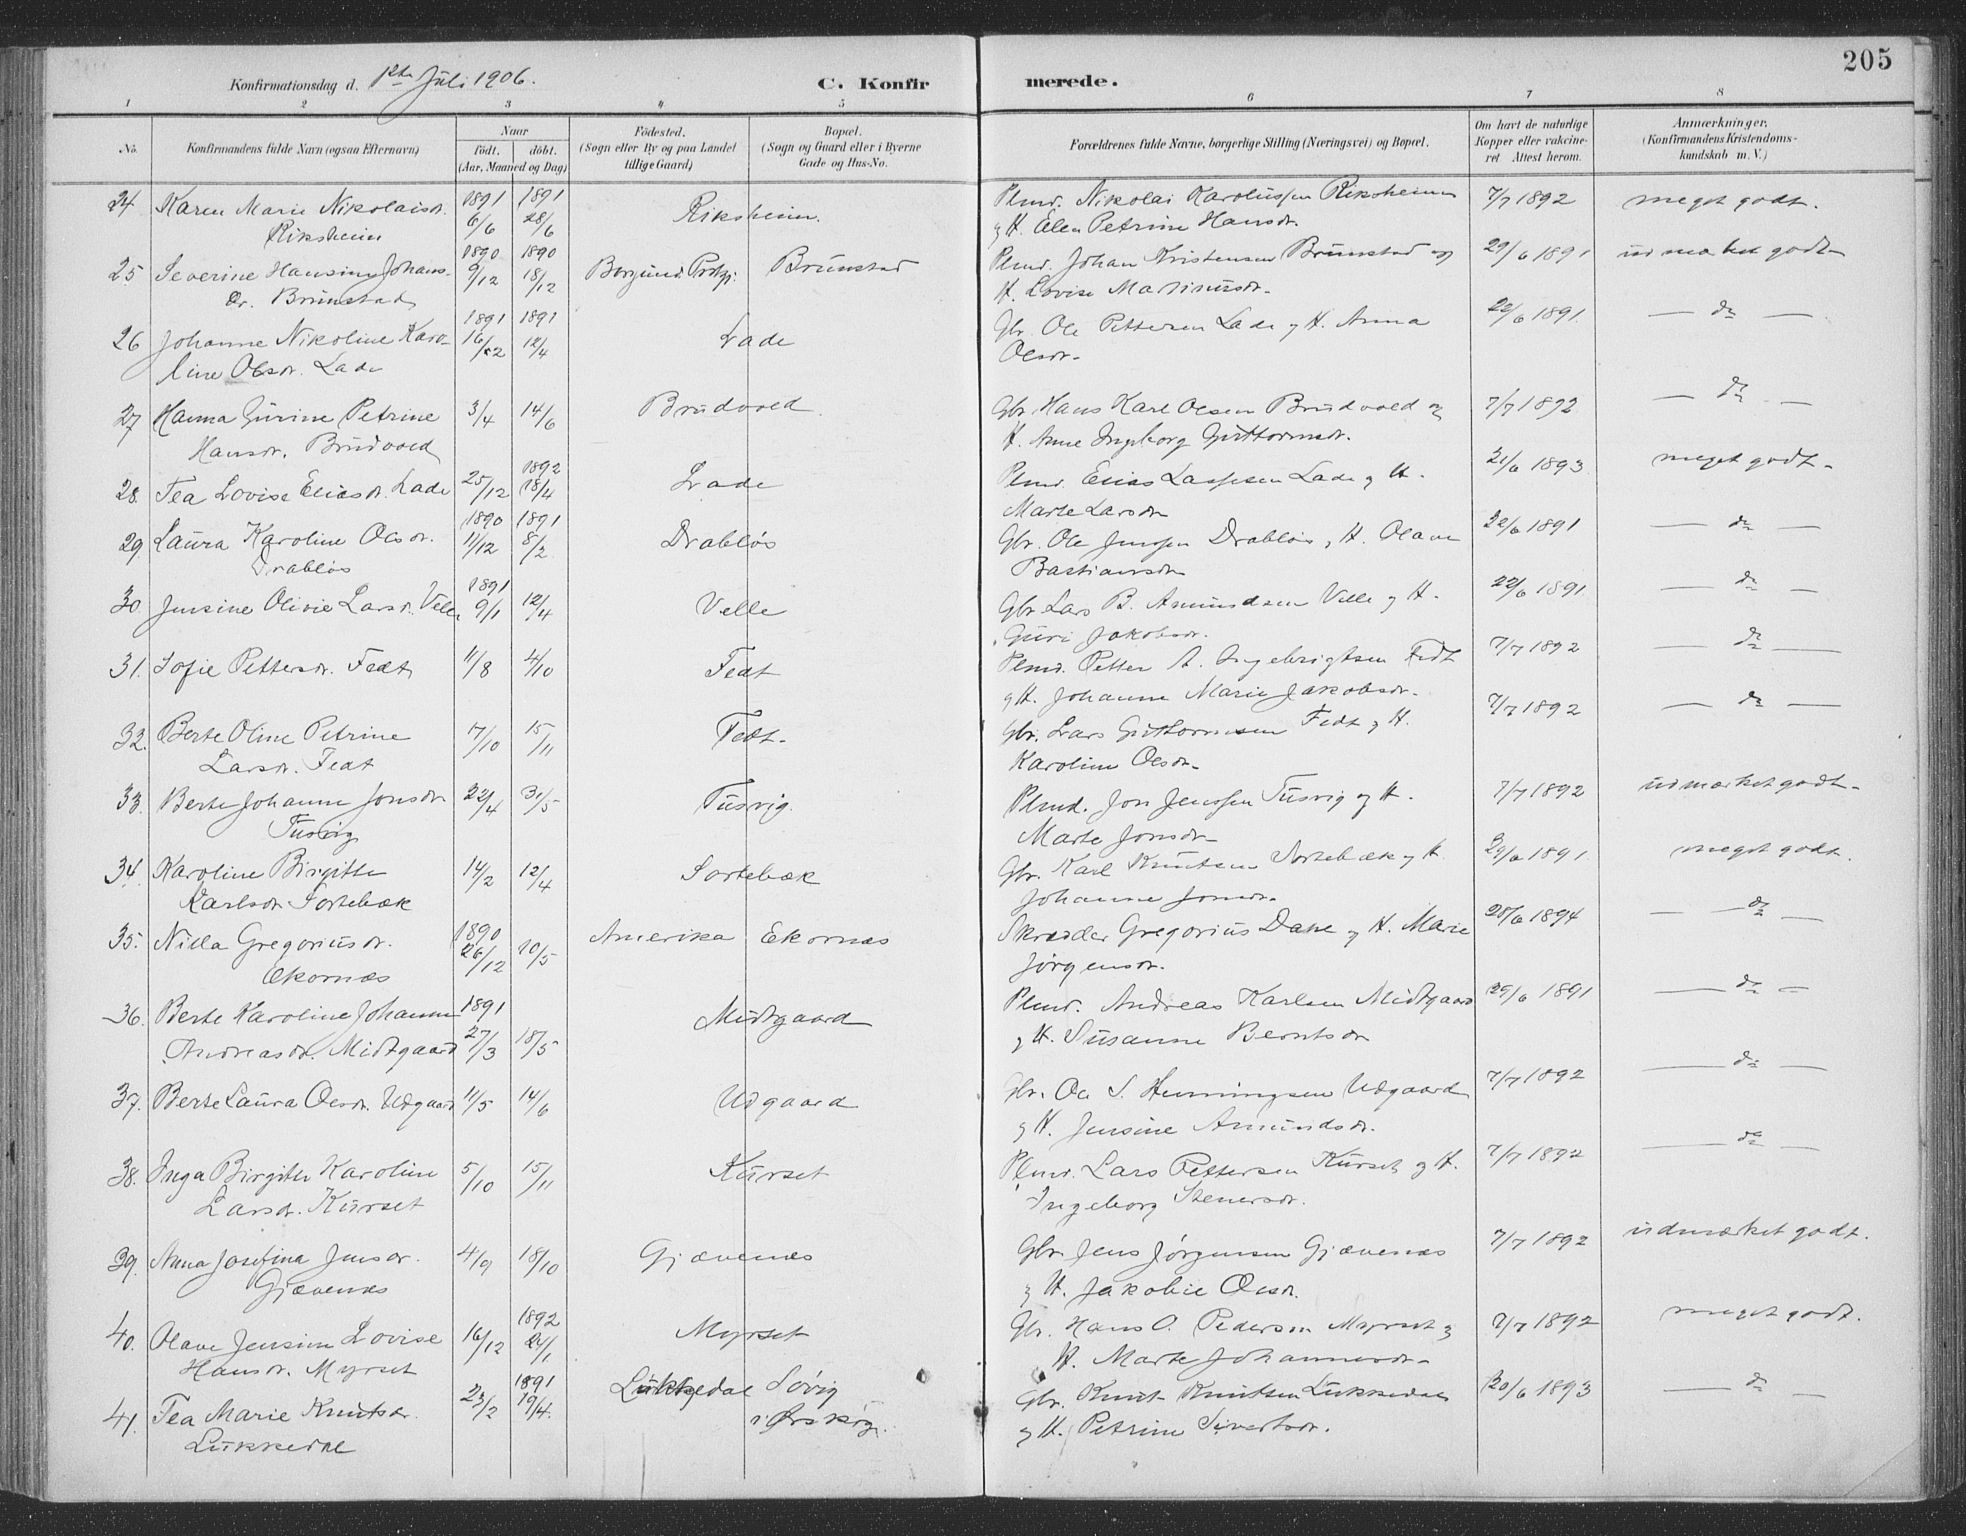 205
Konfirmationsdag d. 1ste Juli 1906.
C. Konfirmerede.
1 2 3 4 5 6 7 8
No.
Konfirmandens fulde Navn (ogsaa Efternavn)
Naar
födt. döbt.
(Aar, Maaned og Dag)
Födested.
(Sogn eller By og paa Landet
tillige Gaard)
Bopæl.
(Sogn og Gaard eller i Byerne
Gade og Hus-No.
Forældrenes fulde Navne, borgerlige Stilling (Næringsvei) og Bopæl.
Om havt de naturlige
Kopper eller vakcine-
ret Attest herom.
Anmærkninger.
(Konfirmandens Kristendoms-
kundskab m. V.)
24 Karen Marie Nikolaisdr. 1891 6/6 1891 28/6 Riksheim. Plmd. Nikolai Karolussen Riksheim 7/7 1892 meget godt.
Riksheim og H. Elen Petrine Hansdr.
25 Severine Hansine Johans- 1890 9/12 1890 18/12 Borgund Prstgj. Brunstad Plmd. Johan Kristensen Brunstad og 29/6 1891 udmærket godt
dr. Brunstad H. Lovise Martinusdr.
26 Johanne Nikoline Karo- 1891 16/2 1891 12/4 Lade Gbr. Ole Pettersen Lade og H. Anna 22/6 1891 — do —
line Olsdr. Lade Olsdr.
27 Hanna Gurine Petrine 3/4 14/6 Brudvold Gbr. Hans Karl Olsen Brudvold og 7/7 1892 — do —
Hansdr. Brudvold H. Anne Ingeborg Guttormsdr.
28. Tea Lovise Eliasdr. Lade 25/12 1892 18/4 Lade Plmd. Elias Lassesen Lade og H. 21/6 1893 meget godt
Marte Larsdr
29. Laura Karoline Olsdr. 1890 11/12 1891 8/2 Drabløs Gbr. Ole Jenssen Drabløs og H. Olave 22/6 1891 — do —
Drabløs Bastiansdr
30. Jensine Olivie Larsdr. Velle 1891 9/1 12/4 Velle Gbr. Lars B. Amundsen Velle og H. 22/6 1891 — do —
Guri Jakobsdr.
31. Sofie Pettersdr. Fedt 11/8 4/10 Fedt Plmd. Petter A. Ingebrigtsen Fedt 7/7 1892 — do —
og H. Johanne Marie Jakobsdr.
32. Berte Oline Petrine 17/10 15/11 Fedt. Gbr. Lars Guttormsen Fedt og H. 7/7 1892 — do —
Larsdr. Fedt Karoline Olsdr.
33. Berte Johanne Jonsdr 22/4 31/5 Tusvig. Plmd. Jon Jenssen Tusvig og H. 7/7 1892 udmærket godt.
Tusvig Marte Jonsdr
34. Karoline Birgitte 14/2 12/4 Sortebæk Gbr. Karl Knutsen Sortebæk og H. 29/6 1891. meget godt.
Karlsdr. Sortebæk Johanne Jonsdr.
35. Nilla Gregoriusdr. 1890 26/12 10/5 Amerika Ekornæs Skrædder Gregorius Dahe og H. Marie 28/6 1894 — do —
Ekornæs Jørgensdr.
36. Berte Karoline Johanne 1891 27/3 18/5 Midtgaard Plmd. Andreas Karlsen Midtgaard 29/6 1891 — do —
Andreasdr. Midtgaard og H. Susanne Berntsdr
37. Berte Laura Olsdr. Udgaard 11/5 14/6 Udgaard Gbr. Ole S. Henningsen Udgaard 7/7 1892 — do —
og H. Jensine Amundsdr.
38. Inga Birgitte Karoline 5/10 15/11 Kurset Plmd. Lars Pettersen Kurset og H. 7/7 1892 — do —
Larsdr. Kurset Ingeborg Stenersdr.
39. Anna Josefina Jensdr. 4/9 18/10 Gjævenæs Gbr. Jens Jørgensen Gjævenæs 7/7 1892 udmærket godt.
Gjævenæs og H. Jakobie Olsdr.
40. Olave Jensine Lovise 16/12 1892 24/1 Myrset Gbr. Hans O. Pedersen Myrset og 7/7 1892 meget godt.
Hansdr. Myrset H. Marte Johannesdr
41. Tea Marie Knutsdr. 23/2 1891 19/4. Lukkedal Søvig Gbr. Knut Knutsen Lukkedal 20/6 1893 — do —
Lukkedal i Ørskog. og H. Petrine Sivertsdr.